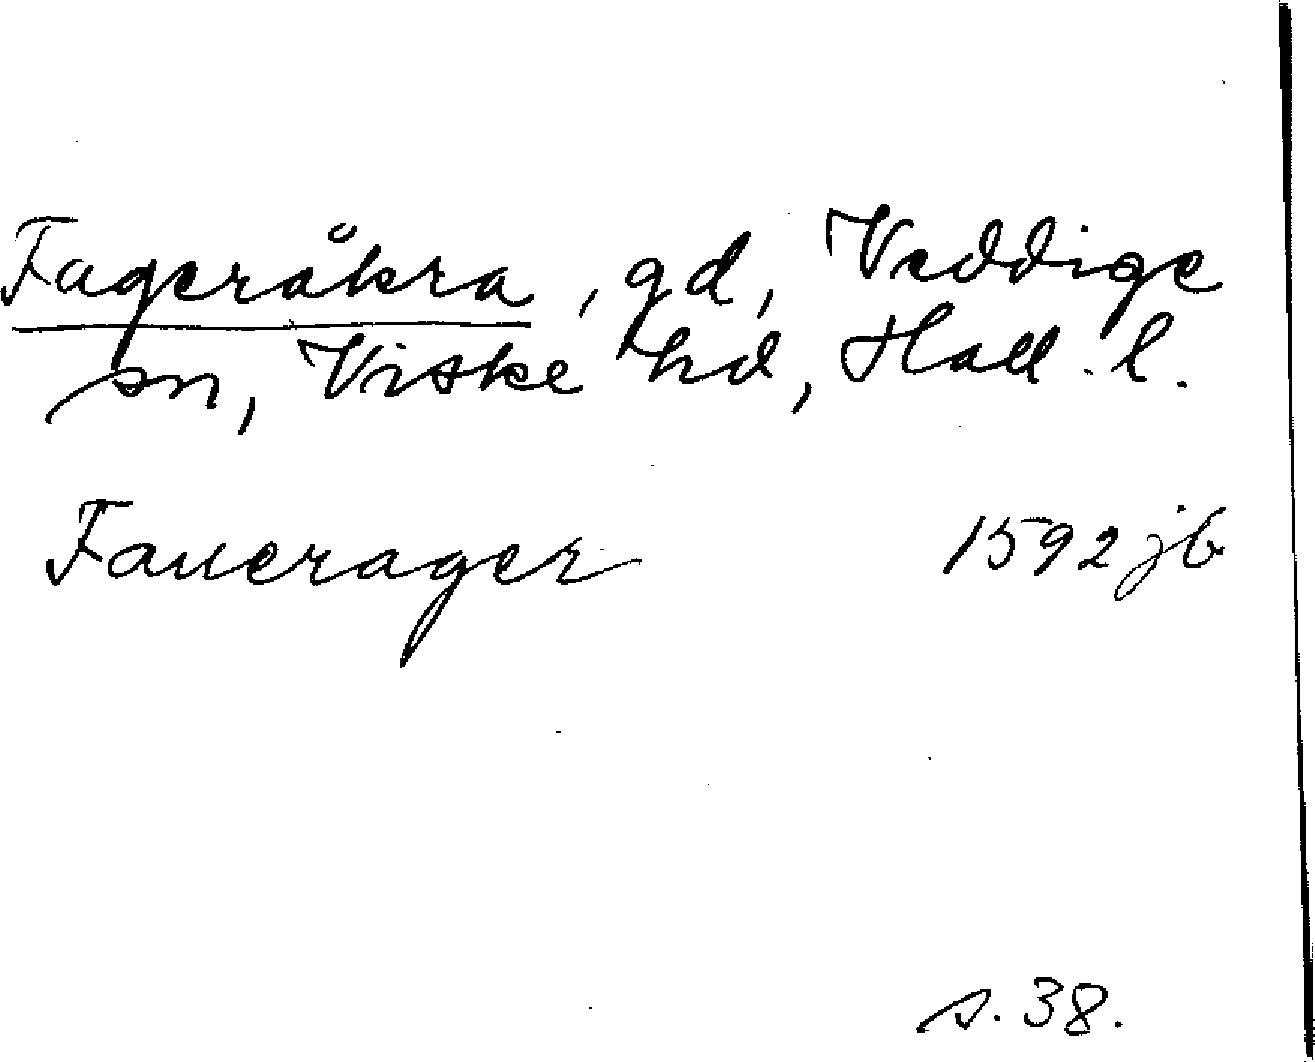 Fageråkra, gd, Veddige
sn, Viske hd, Hall. l.
Fauerager 1592 jb
s. 38.